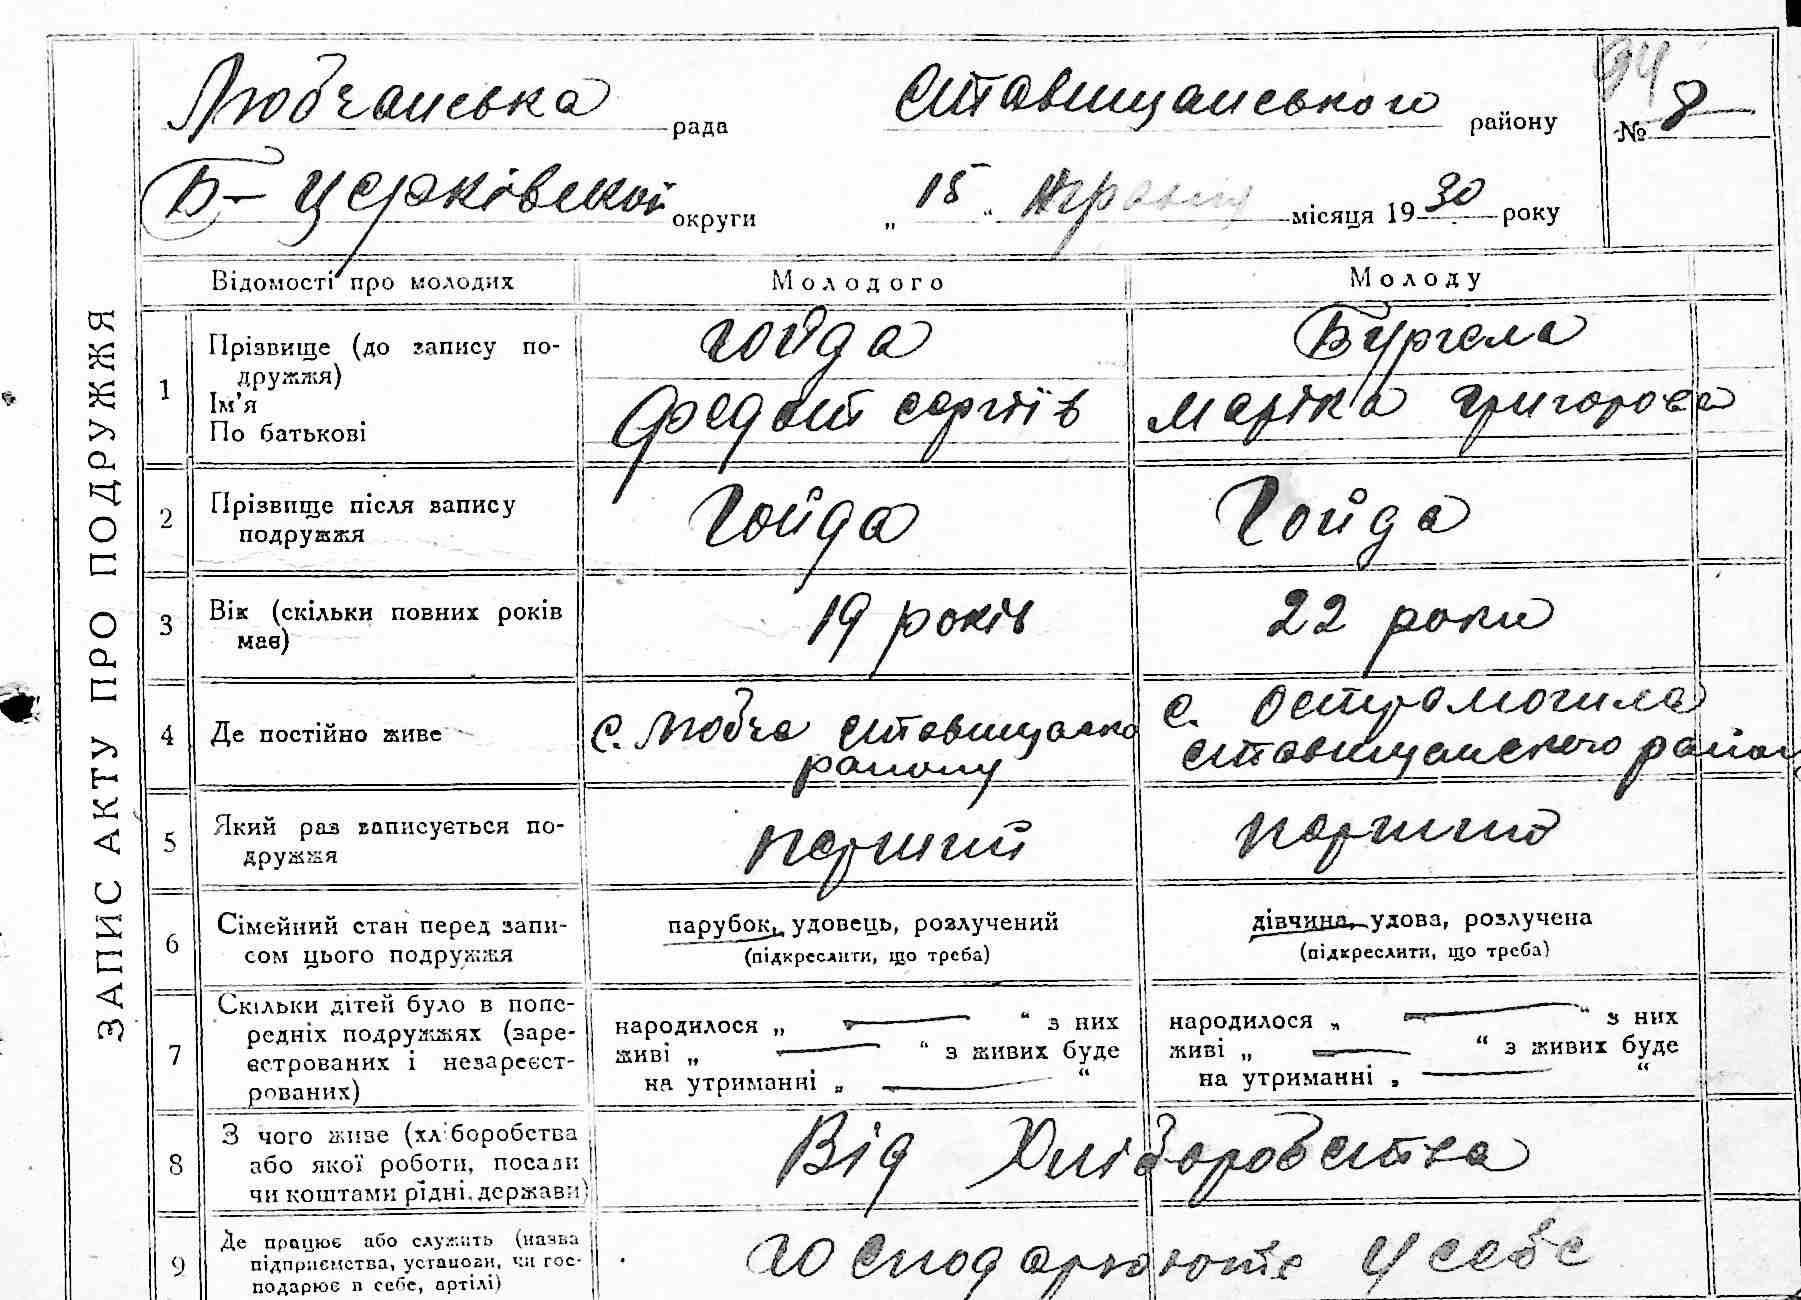 ЗАПИС АКТУ ПРО ПОДРУЖЖЯ
Любчанська рада Ставищанського району
94
№ 8
Б-Церківської округи „ 15 “ місяця 1930 року
Відомості про молодих Молодого Молоду
1 Прізвище (до запису по-
дружжя)
Ім'я
По батькові
Гойда
Федот Сергіїв
Бургела
Маріка Григорова
2 Прізвище після запису
подружжя
Гойда Гойда
3 Вік (скільки повних років
має)
19 років 22 роки
4 Де постійно живе
с. Любча Ставищанско
району
с. Острамогила
Ставищанского район
5 Який раз записується по-
дружжя
перший перший
6 Сімейний стан перед запи-
сом цього подружжя
парубок, удовець, розлучений
(підкреслити, що треба)
дівчина, удова, розлучена
(підкреслити, що треба)
7 Скільки дітей було в попе-
редніх подружжях (заре-
єстрованих і незареєст-
рованих)
народилося „ “ з них
живі „ “ з живих буде
на утриманні „ “
народилося „ “ з них
живі „ “ з живих буде
на утриманні „ “
8 З чого живе (хліборобства
або якої роботи, посади
чи коштами рідні, держави)
Від Хліборобства
9 Де працює або служить (назва
підприємства, установи, чи гос-
подарює в себе, артілі)
господарюють у себе